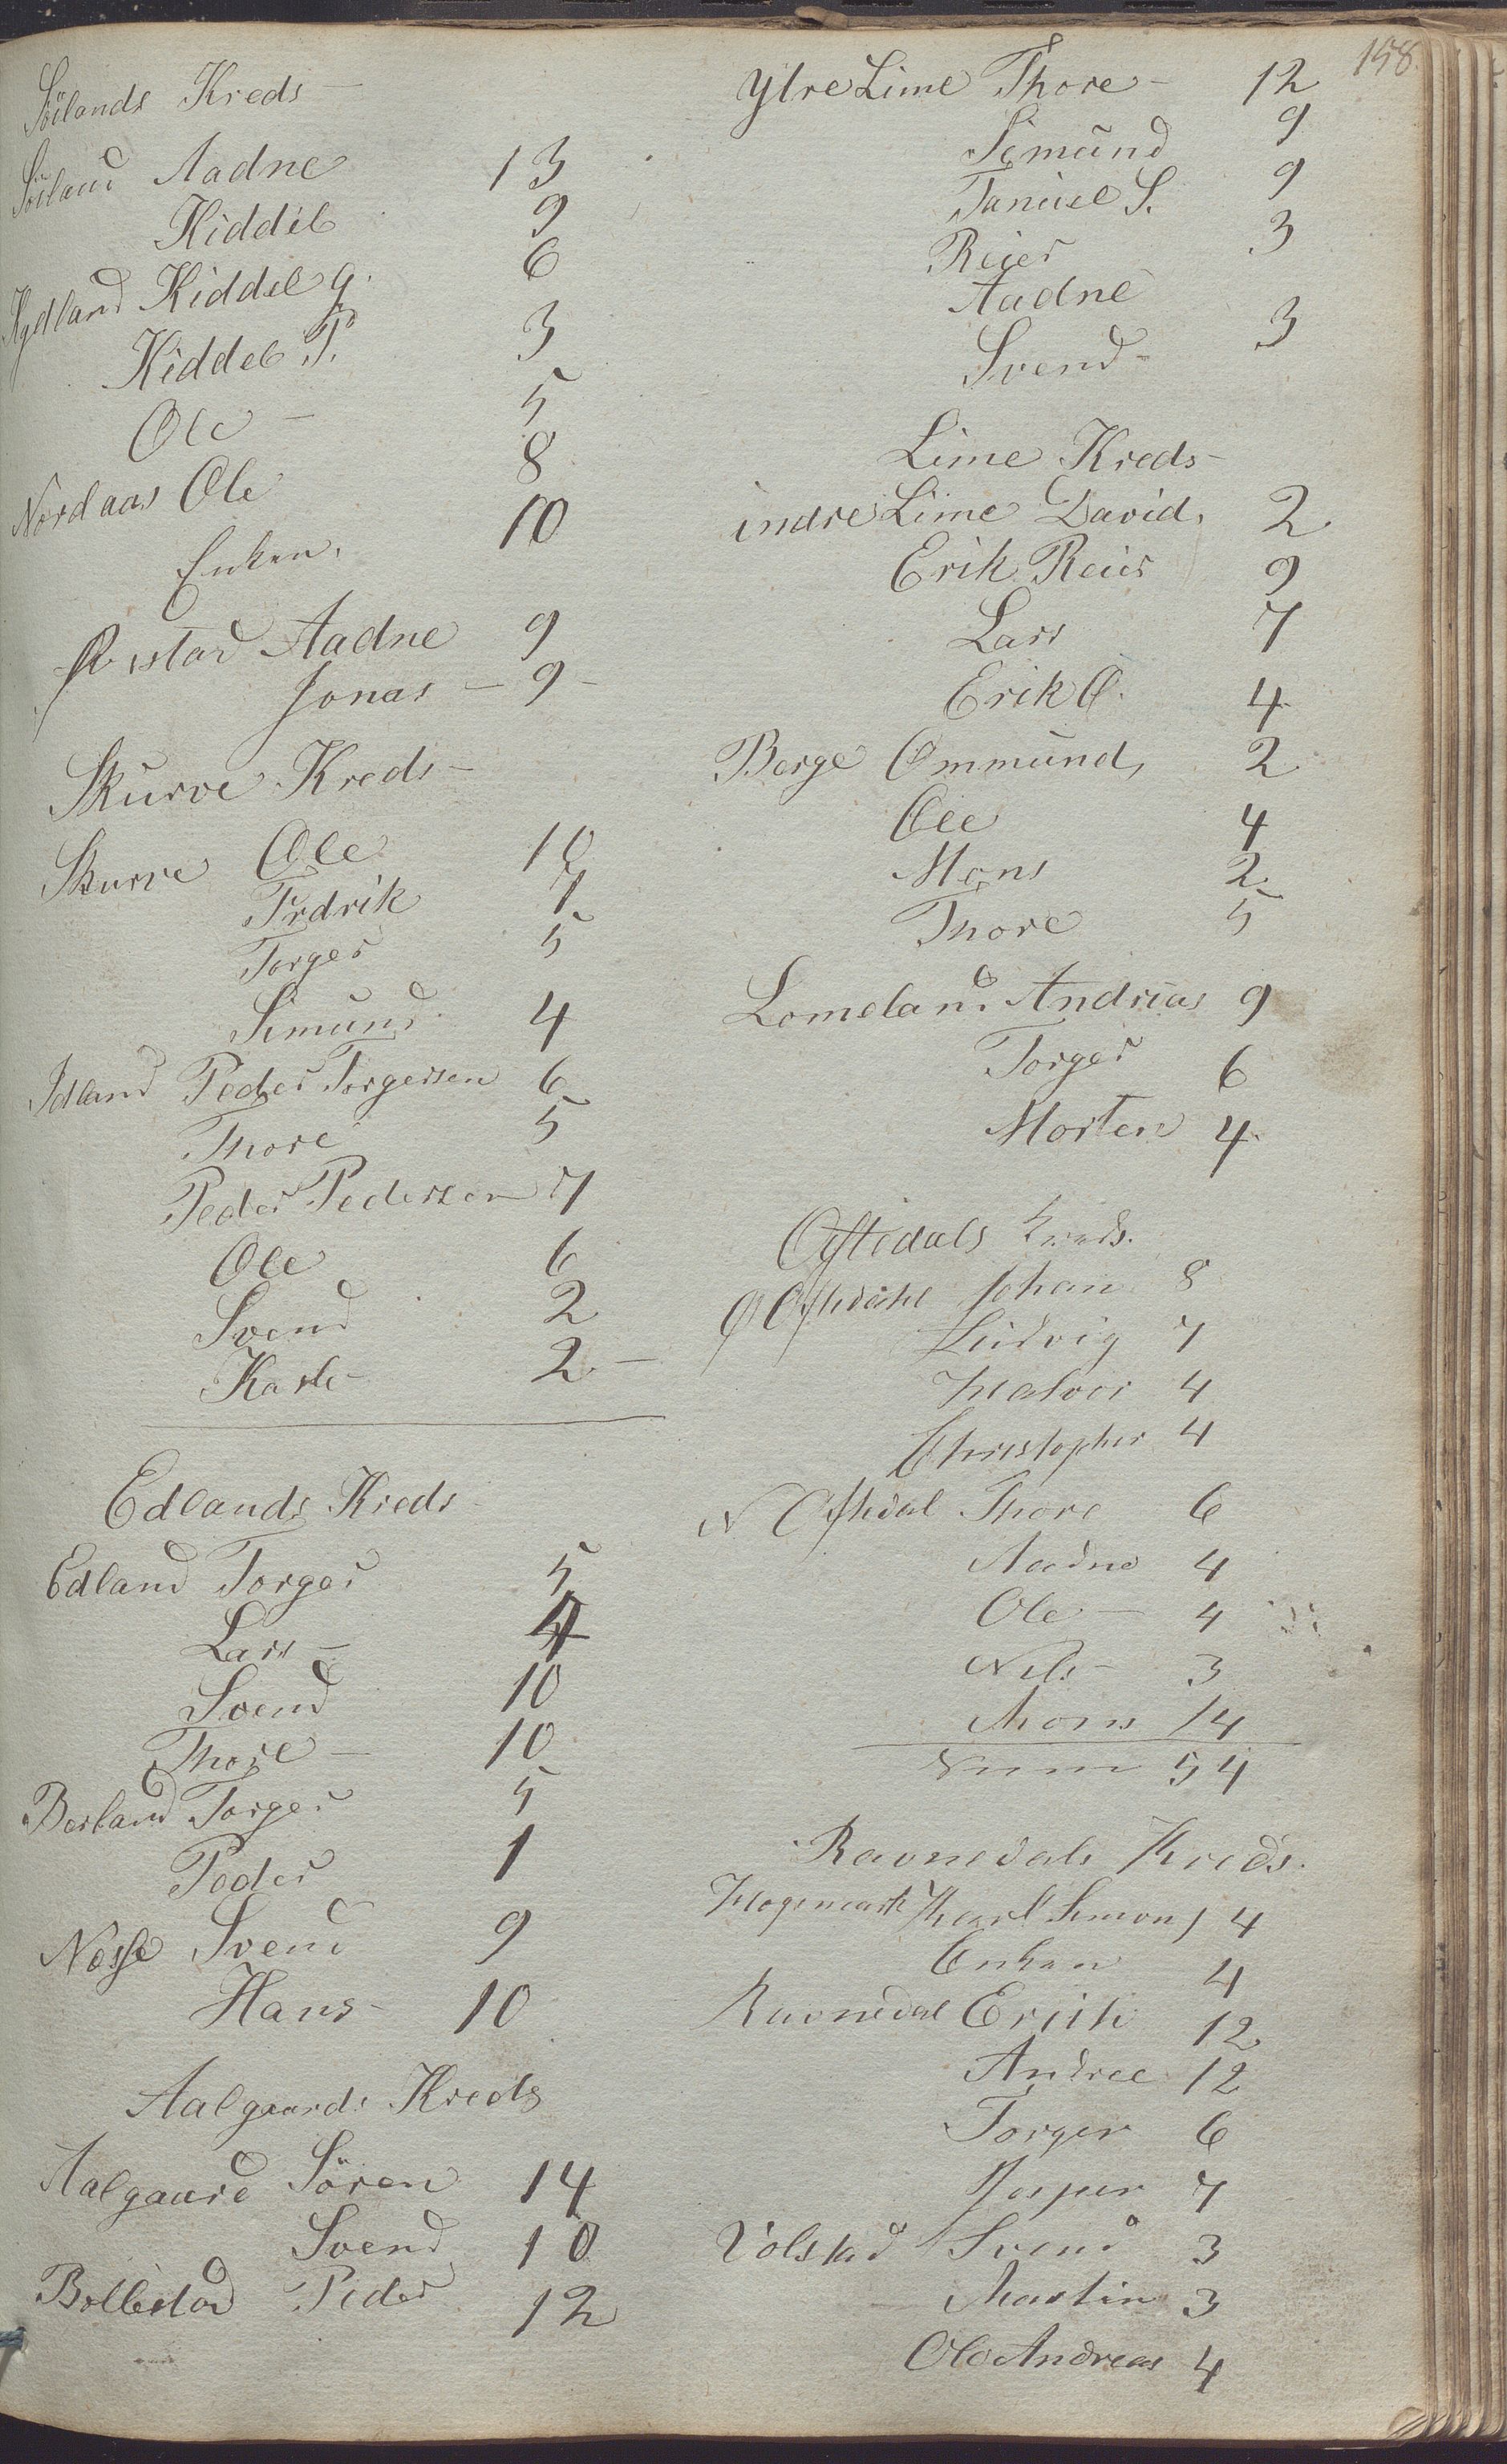 158.
Söilands Kreds
Söiland Aadne 13
Kiddel 9
Kydland Kiddel G. 6
Kiddel T. 3
Ole - 5
Nordaas Ole 8
Enken. 10
Østad Aadne 9
Jonas - 9 -
Skurve Kreds -
Skurve Ole 10
Fredrik 7
Torger 5
Simund 4
Idland Peder Torgersen 6
Thore 5
Peder Pedersen 7
Ole 6
Svend 2
Karle - 2 -
Edlands Kreds
Edland Torger 5
Lars - 4
Svend 10
Thore - 10
Berland Torger 5
Peder 1
Nesse Svend 9
Hans - 10
Aalgaards Kreds
Aalgaard Sören 14
Svend 10
Bollestad Peder 12
Ytre Lime Thore - 12
Simund 9
Taniel S. 9
Reier 3
Aadne
Svend - 3
Lime Kreds -
indre Lime David, 2
Erik Reier 9
Lars 7
Erik O. 4
Berge Ommund, 2
Ole 4
Mons 2
Thore 5
Lomeland Andreas 9
Torger 6
Morten 4
Oftedals Kreds.
Ø Oftedahl Johan 8
Ludvig 7
Halvor 4
Christopher 4
N Oftedal Thore 6
Aadne 4
Ole - 4
Nils - 3
Mons 14
54
Ravnedals Kreds.
Karl Simons 4
Enken 4
Ravnedal Erik 12
Andree 12
Torger 6
Jesper 7
Volstad Svend 3
Martin 3
Ole Andreas 4